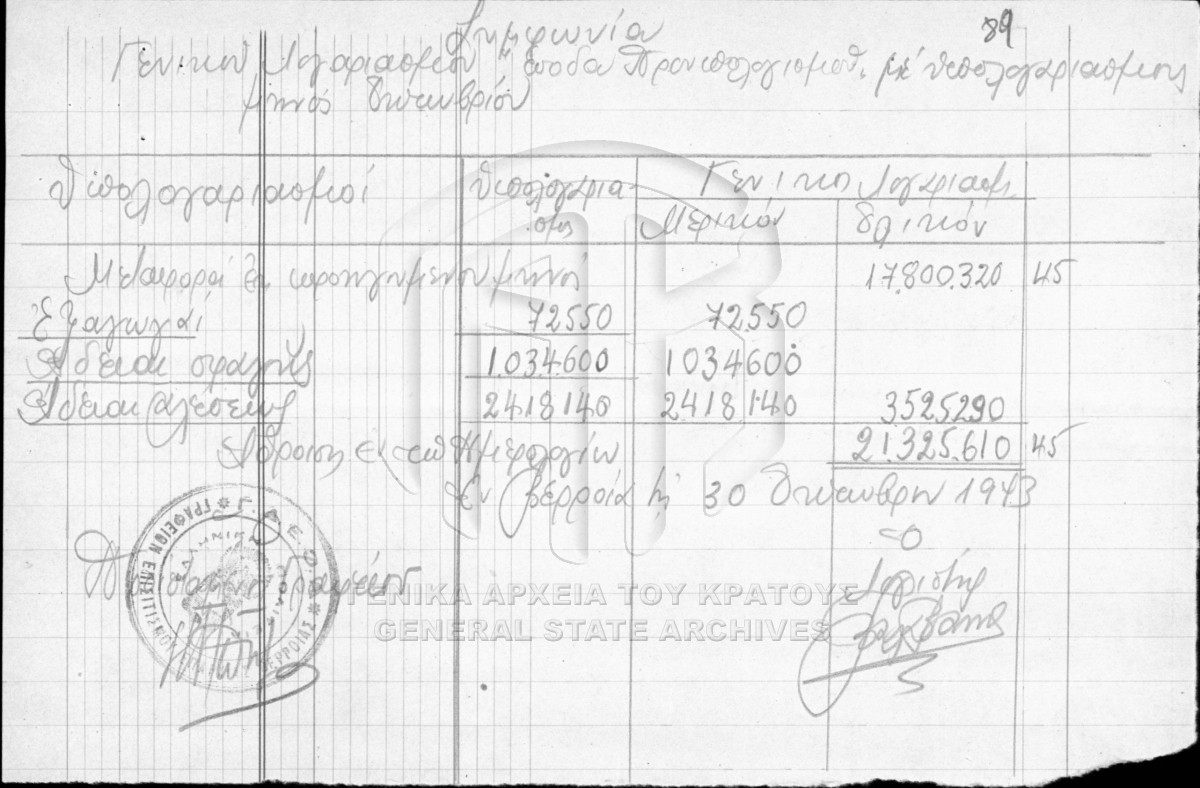 89
Συμφωνία
Γενικού Λογαριασμού "Έσοδα Προϋπολογισμού" με υπολογαριασμούς
μηνός Οκτωβρίου
Υπολογαριασμοί
Υπολογαρια-
σμός
Γενικός Λογαριασμ.
Μερικόν
Ολικόν
Μεταφορά εκ προηγουμένου μηνός 17.800.320 45
Εξαγωγαί 72550 72.550
Άδειαι σφαγής 1.034.600 1034600
Άδειαι αλέσεως 2418140 2418140 3525290
Άθροισις εν τω Ημερολογίω 21.325.610 45
Εν Βερροία τη 30 Οκτωβρίου 1943
Ο
Λογιστής
ΓΡΑΦΕΙΟΝ ΕΠΙΣΙΤΙΣΜΟΥ ΒΕΡΡΟΙΑΣ
ΕΛΛΗΝΙΚΗ
ΓΕΝΙΚΑ ΑΡΧΕΙΑ ΤΟΥ ΚΡΑΤΟΥΣ
GENERAL STATE ARCHIVES